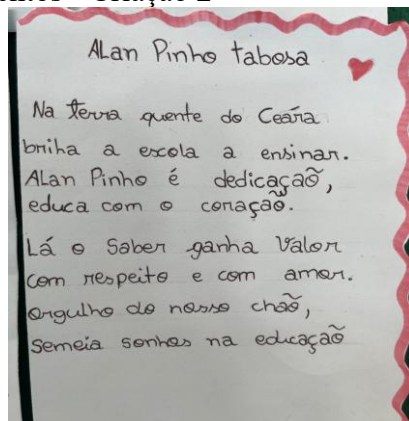 ALan Pinho tabosa
Na terra quente do Ceára
briha a escola a ensinar.
ALan Pinho é dedicação,
educa com o coração.
Lá o Saber ganha Valor
com respeito e com amor.
orgulho do nosso chão,
Semeia sonhos na educação